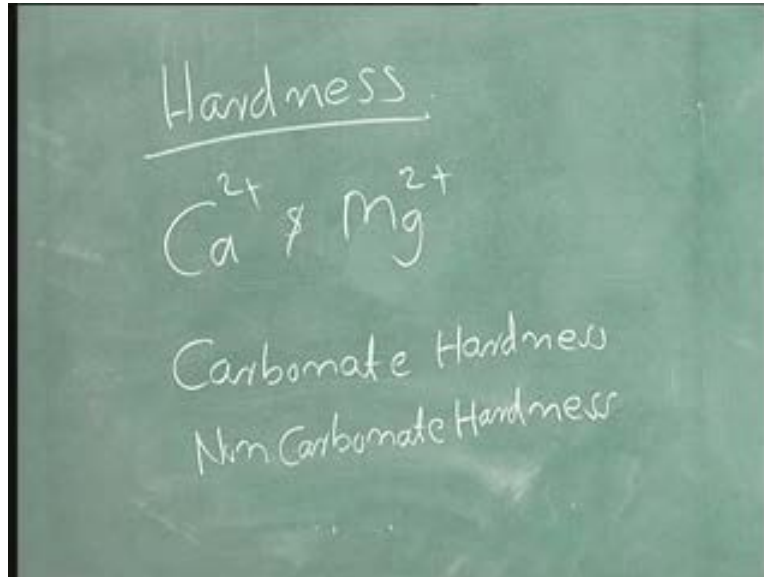 Hardness
Ca²⁺ & Mg²⁺
Carbonate Hardness
Non Carbonate Hardness